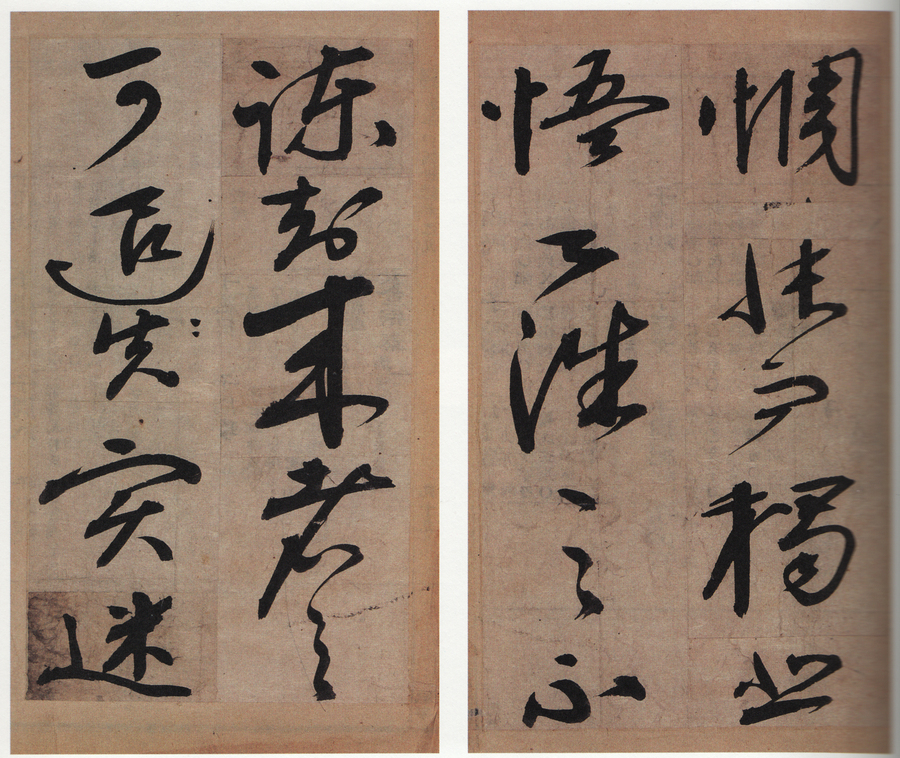 惆悵而獨悲
悟已往之不
諫知來者之
可追實迷